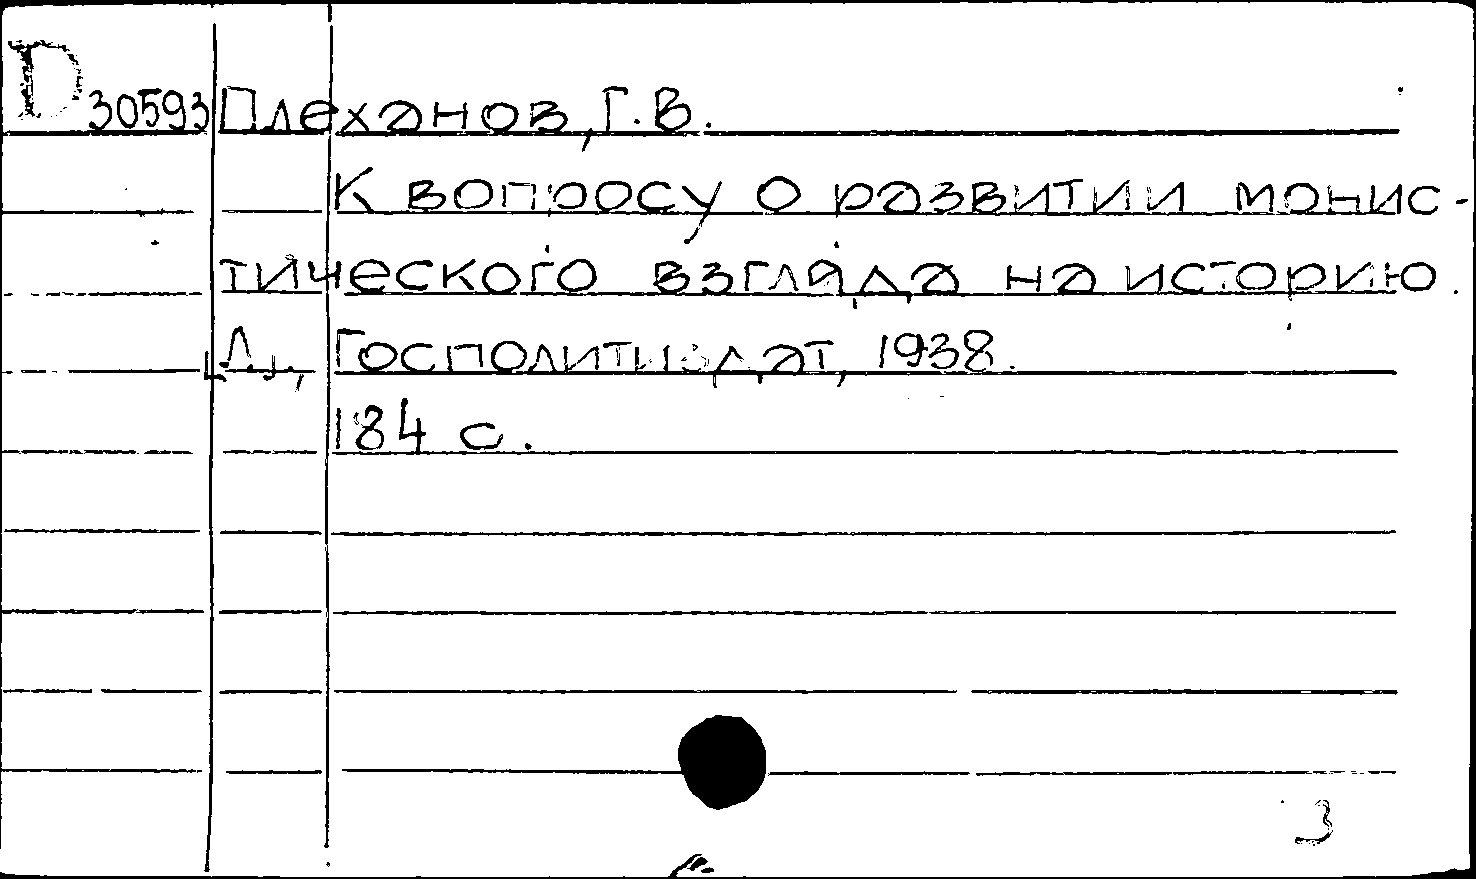 D 30593 Плеханов, Г.В.
К вопросу о развитии монис-
тического взгляда на историю.
Л., Госполитиздат, 1938.
184 с.
3